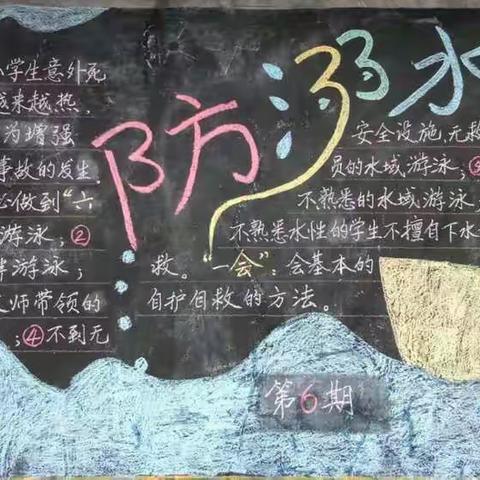 防溺水
小学生意外死
越来越热，
为增强
事故的发生
必做到“六
游泳；②
伴游泳；
师带领的
；④不到无
安全设施、无救
员的水域游泳；⑤
不熟悉的水域游泳；
不熟悉水性的学生不擅自下水
救。一会”：会基本的
自护自救的方法。
第6期